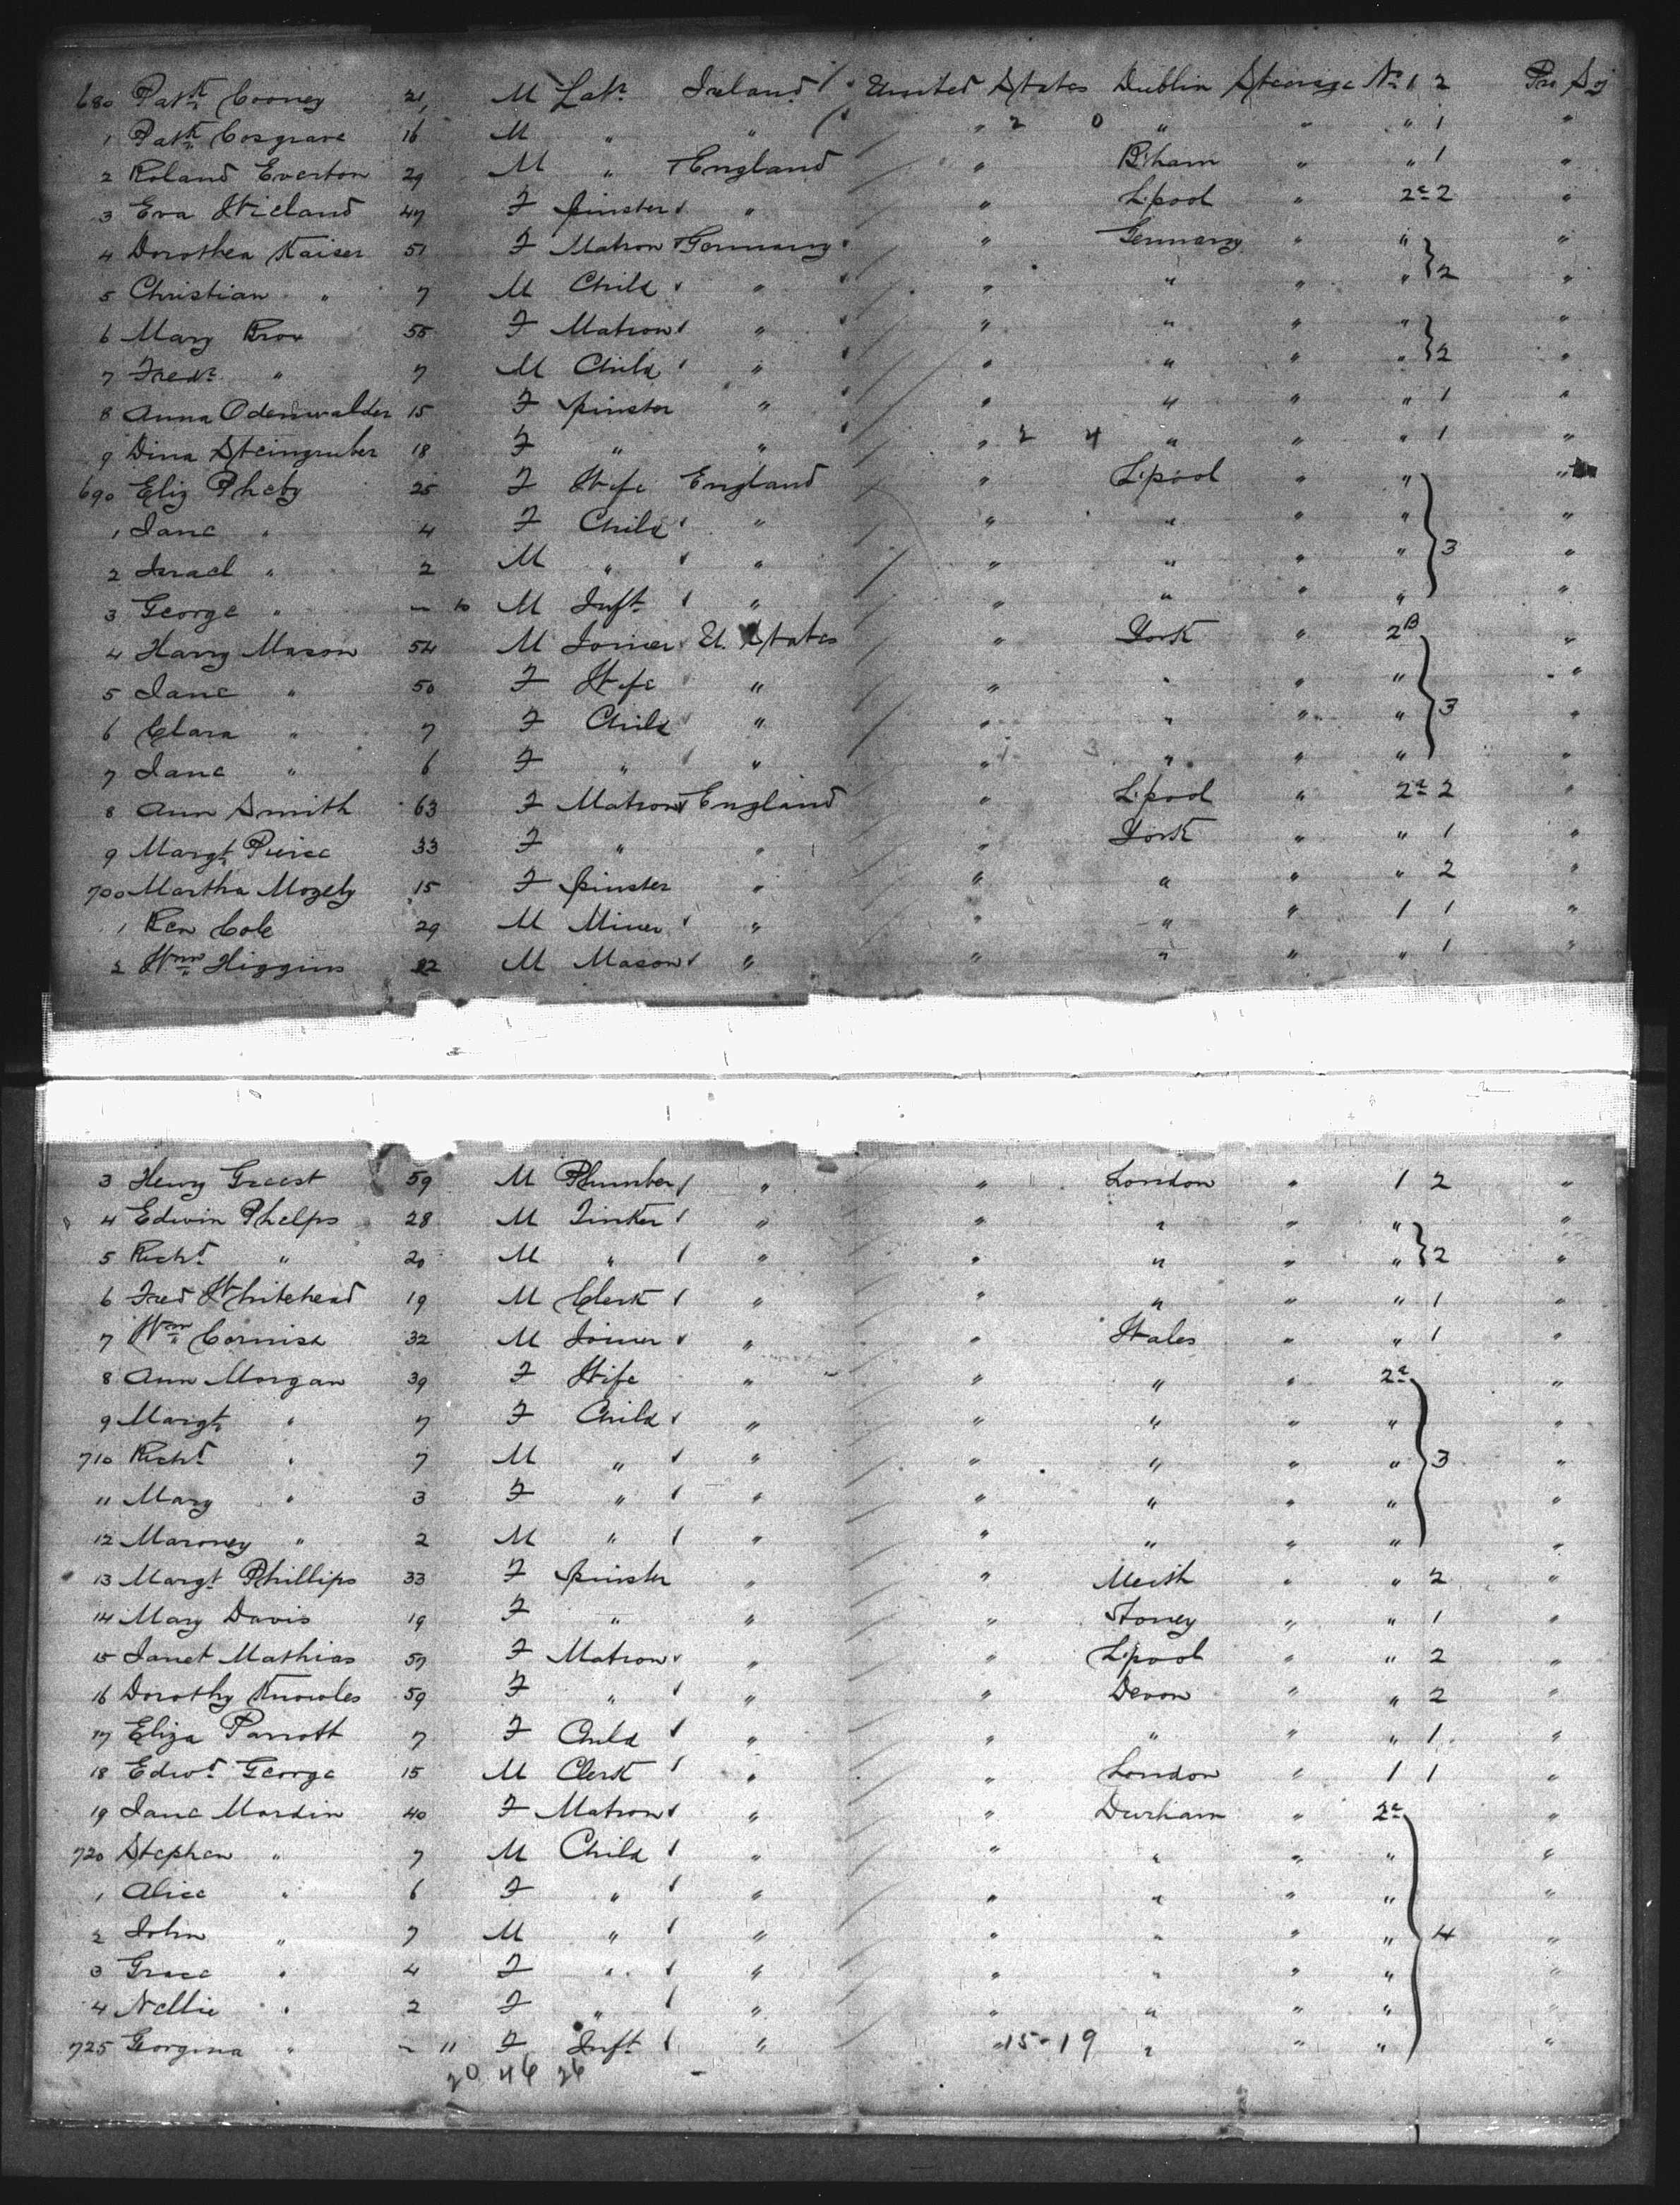 680 Patk Cooney 21 M Labr Ireland United States Dublin Steerage No 1 2 Pro Soj
1 Patk Cosgrave 16 M " " " 2 0 " " " 1 "
2 Roland Everton 29 M " England " B'ham " " 1 "
3 Eva Wieland 47 F Spinster " " L'pool " 2a 2 "
4 Dorothea Kaiser 51 F Matron Germany " Germany " " "
5 Christian " 7 M Child " " " " " 2 "
6 Mary Brox 55 F Matron " " " " " "
7 Fredk " 7 M Child " " " " " 2 "
8 Anna Odenwalder 15 F Spinster " " " " " 1 "
9 Dina Steingruber 18 F " " " 2 4 " " " 1 "
690 Eliz Pheby 25 F Wife England " L'pool " " "
1 Jane " 4 F Child " " " " " "
2 Israel " 2 M " " " " " " 3 "
3 George " – 10 M Inft " " " " " "
4 Harry Mason 54 M Joiner U. States " York " 2B "
5 Jane " 50 F Wife " " " " " "
6 Clara " 7 F Child " " " " " 3 "
7 Jane " 6 F " " " 1 3 " " " "
8 Ann Smith 63 F Matron England " L'pool " 2a 2
9 Margt Pierce 33 F " " " York " " 1 "
700 Martha Mozely 15 F Spinster " " " " " 2 "
1 Ben Cole 29 M Miner " " " " 1 1 "
2 Wm Higgins 32 M Mason " " " " " 1 "
3 Henry Greest 59 M Plumber " " London " 1 2 "
4 Edwin Phelps 28 M Tinker " " " " " "
5 Richd " 20 M " " " " " " 2 "
6 Fred Whitehead 19 M Clerk " " " " " 1 "
7 Wm Cornish 32 M Joiner " " Wales " " 1 "
8 Ann Morgan 39 F Wife " " " " 2a "
9 Margt " 7 F Child " " " " " "
710 Richd " 7 M " " " " " " 3 "
11 Mary " 3 F " " " " " " "
12 Maroney " 2 M " " " " " " "
13 Margt Phillips 33 F Spinster " " Meith " " 2 "
14 Mary Davis 19 F " " " Stoney " " 1 "
15 Janet Mathias 57 F Matron " " L'pool " " 2 "
16 Dorothy Knowles 59 F " " " Devon " " 2 "
17 Eliza Parrott 7 F Child " " " " " 1 "
18 Edwd George 15 M Clerk " " London " 1 1 "
19 Jane Mardin 40 F Matron " " Durham " 2a "
720 Stephen " 7 M Child " " " " " "
1 Alice " 6 F " " " " " " "
2 John " 7 M " " " " " " 4 "
3 Grace " 4 F " " " " " " "
4 Nellie " 2 F " " " " " " "
725 Georgina " – 11 F Inft " " 15-19 " " " "
20 46 26